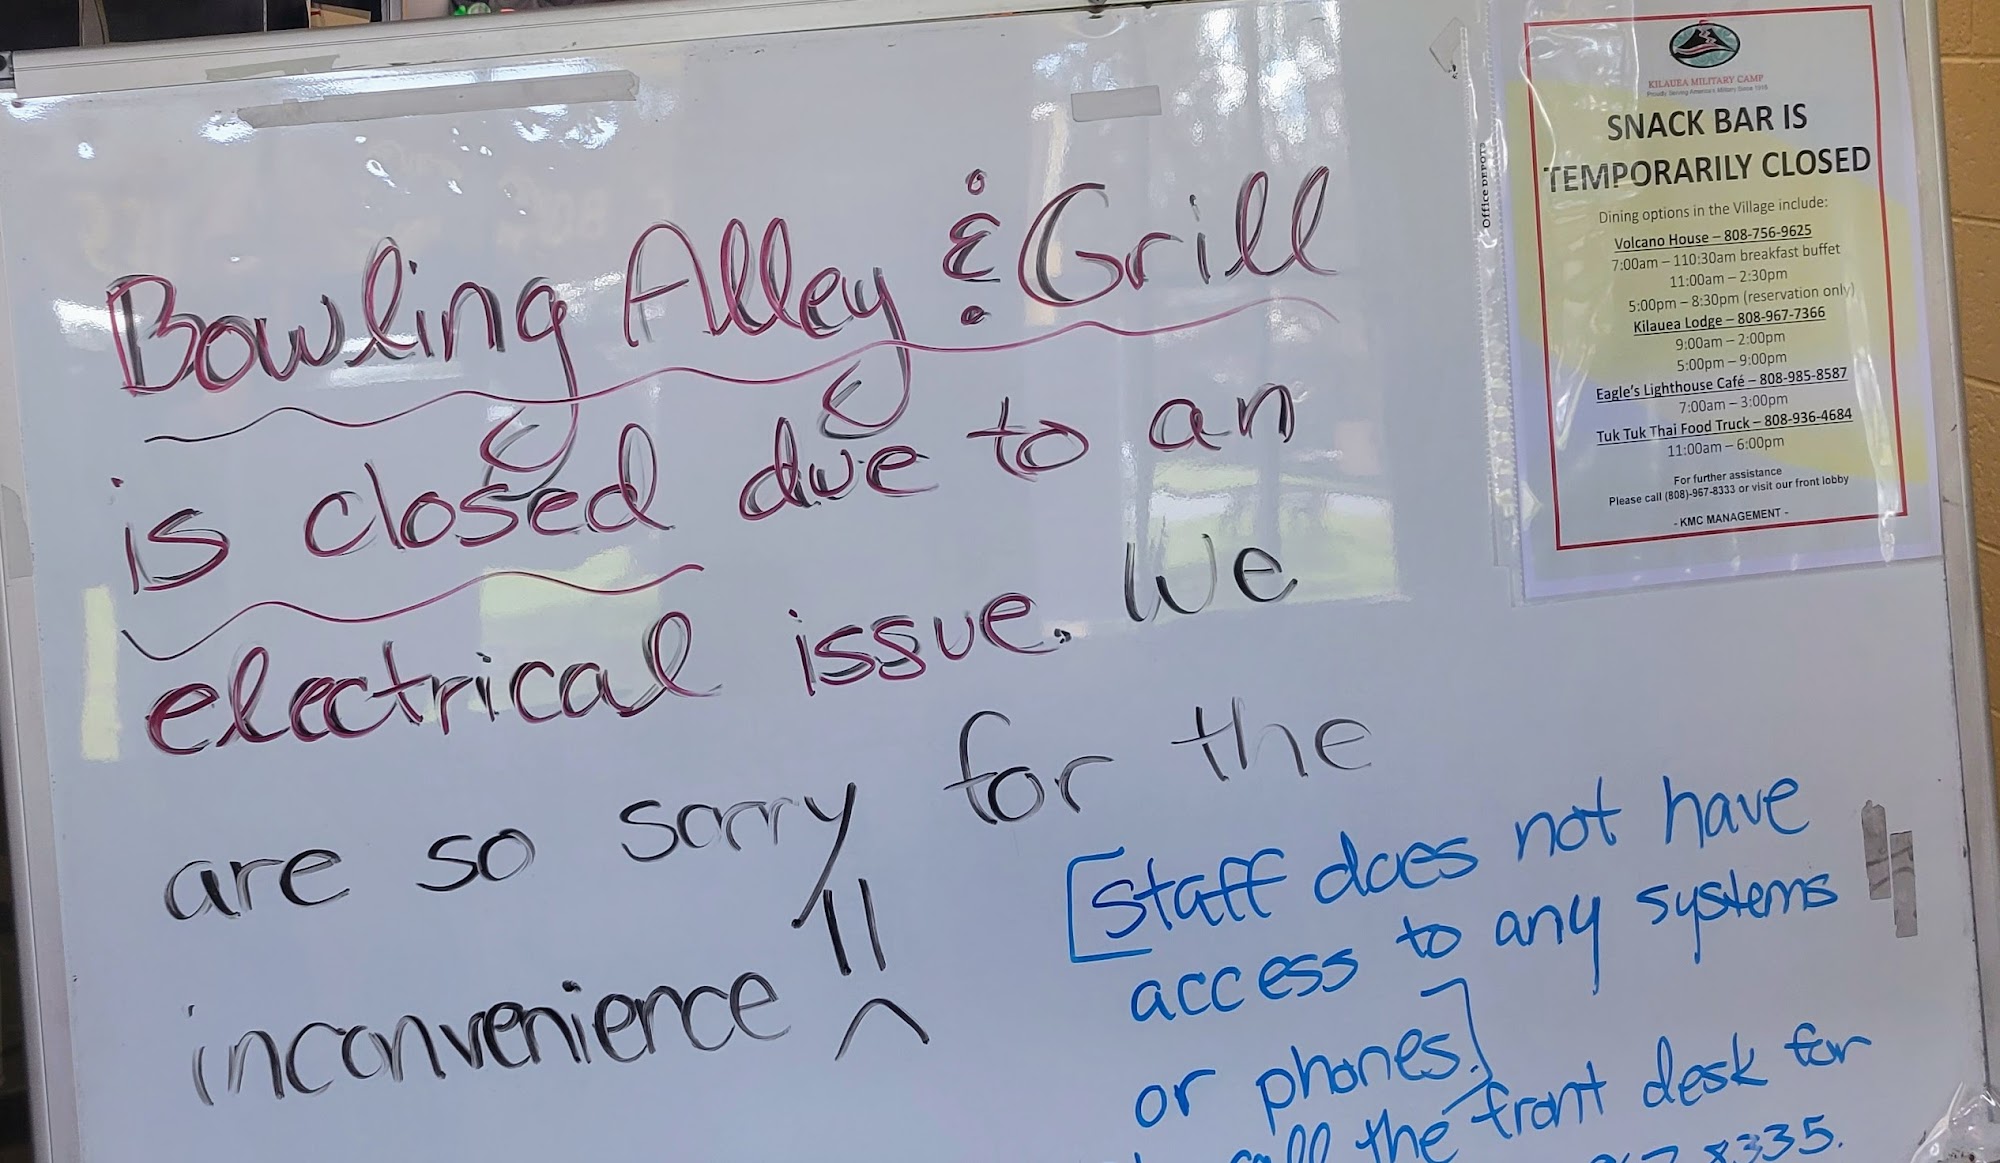 Bowling Alley & Grill
is closed due to an
electrical issue. We
are so sorry for the
inconvenience
[Staff does not have
access to any systems
or phones.]
call the front desk for
8335.
Office DEPOT
KILAUEA MILITARY CAMP
Proudly Serving America's Military Since 1916
SNACK BAR IS
TEMPORARILY CLOSED
Dining options in the Village include:
Volcano House – 808-756-9625
7:00am – 110:30am breakfast buffet
11:00am – 2:30pm
5:00pm – 8:30pm (reservation only)
Kilauea Lodge – 808-967-7366
9:00am – 2:00pm
5:00pm – 9:00pm
Eagle's Lighthouse Café – 808-985-8587
7:00am – 3:00pm
Tuk Tuk Thai Food Truck – 808-936-4684
11:00am – 6:00pm
For further assistance
Please call (808)-967-8333 or visit our front lobby
- KMC MANAGEMENT -